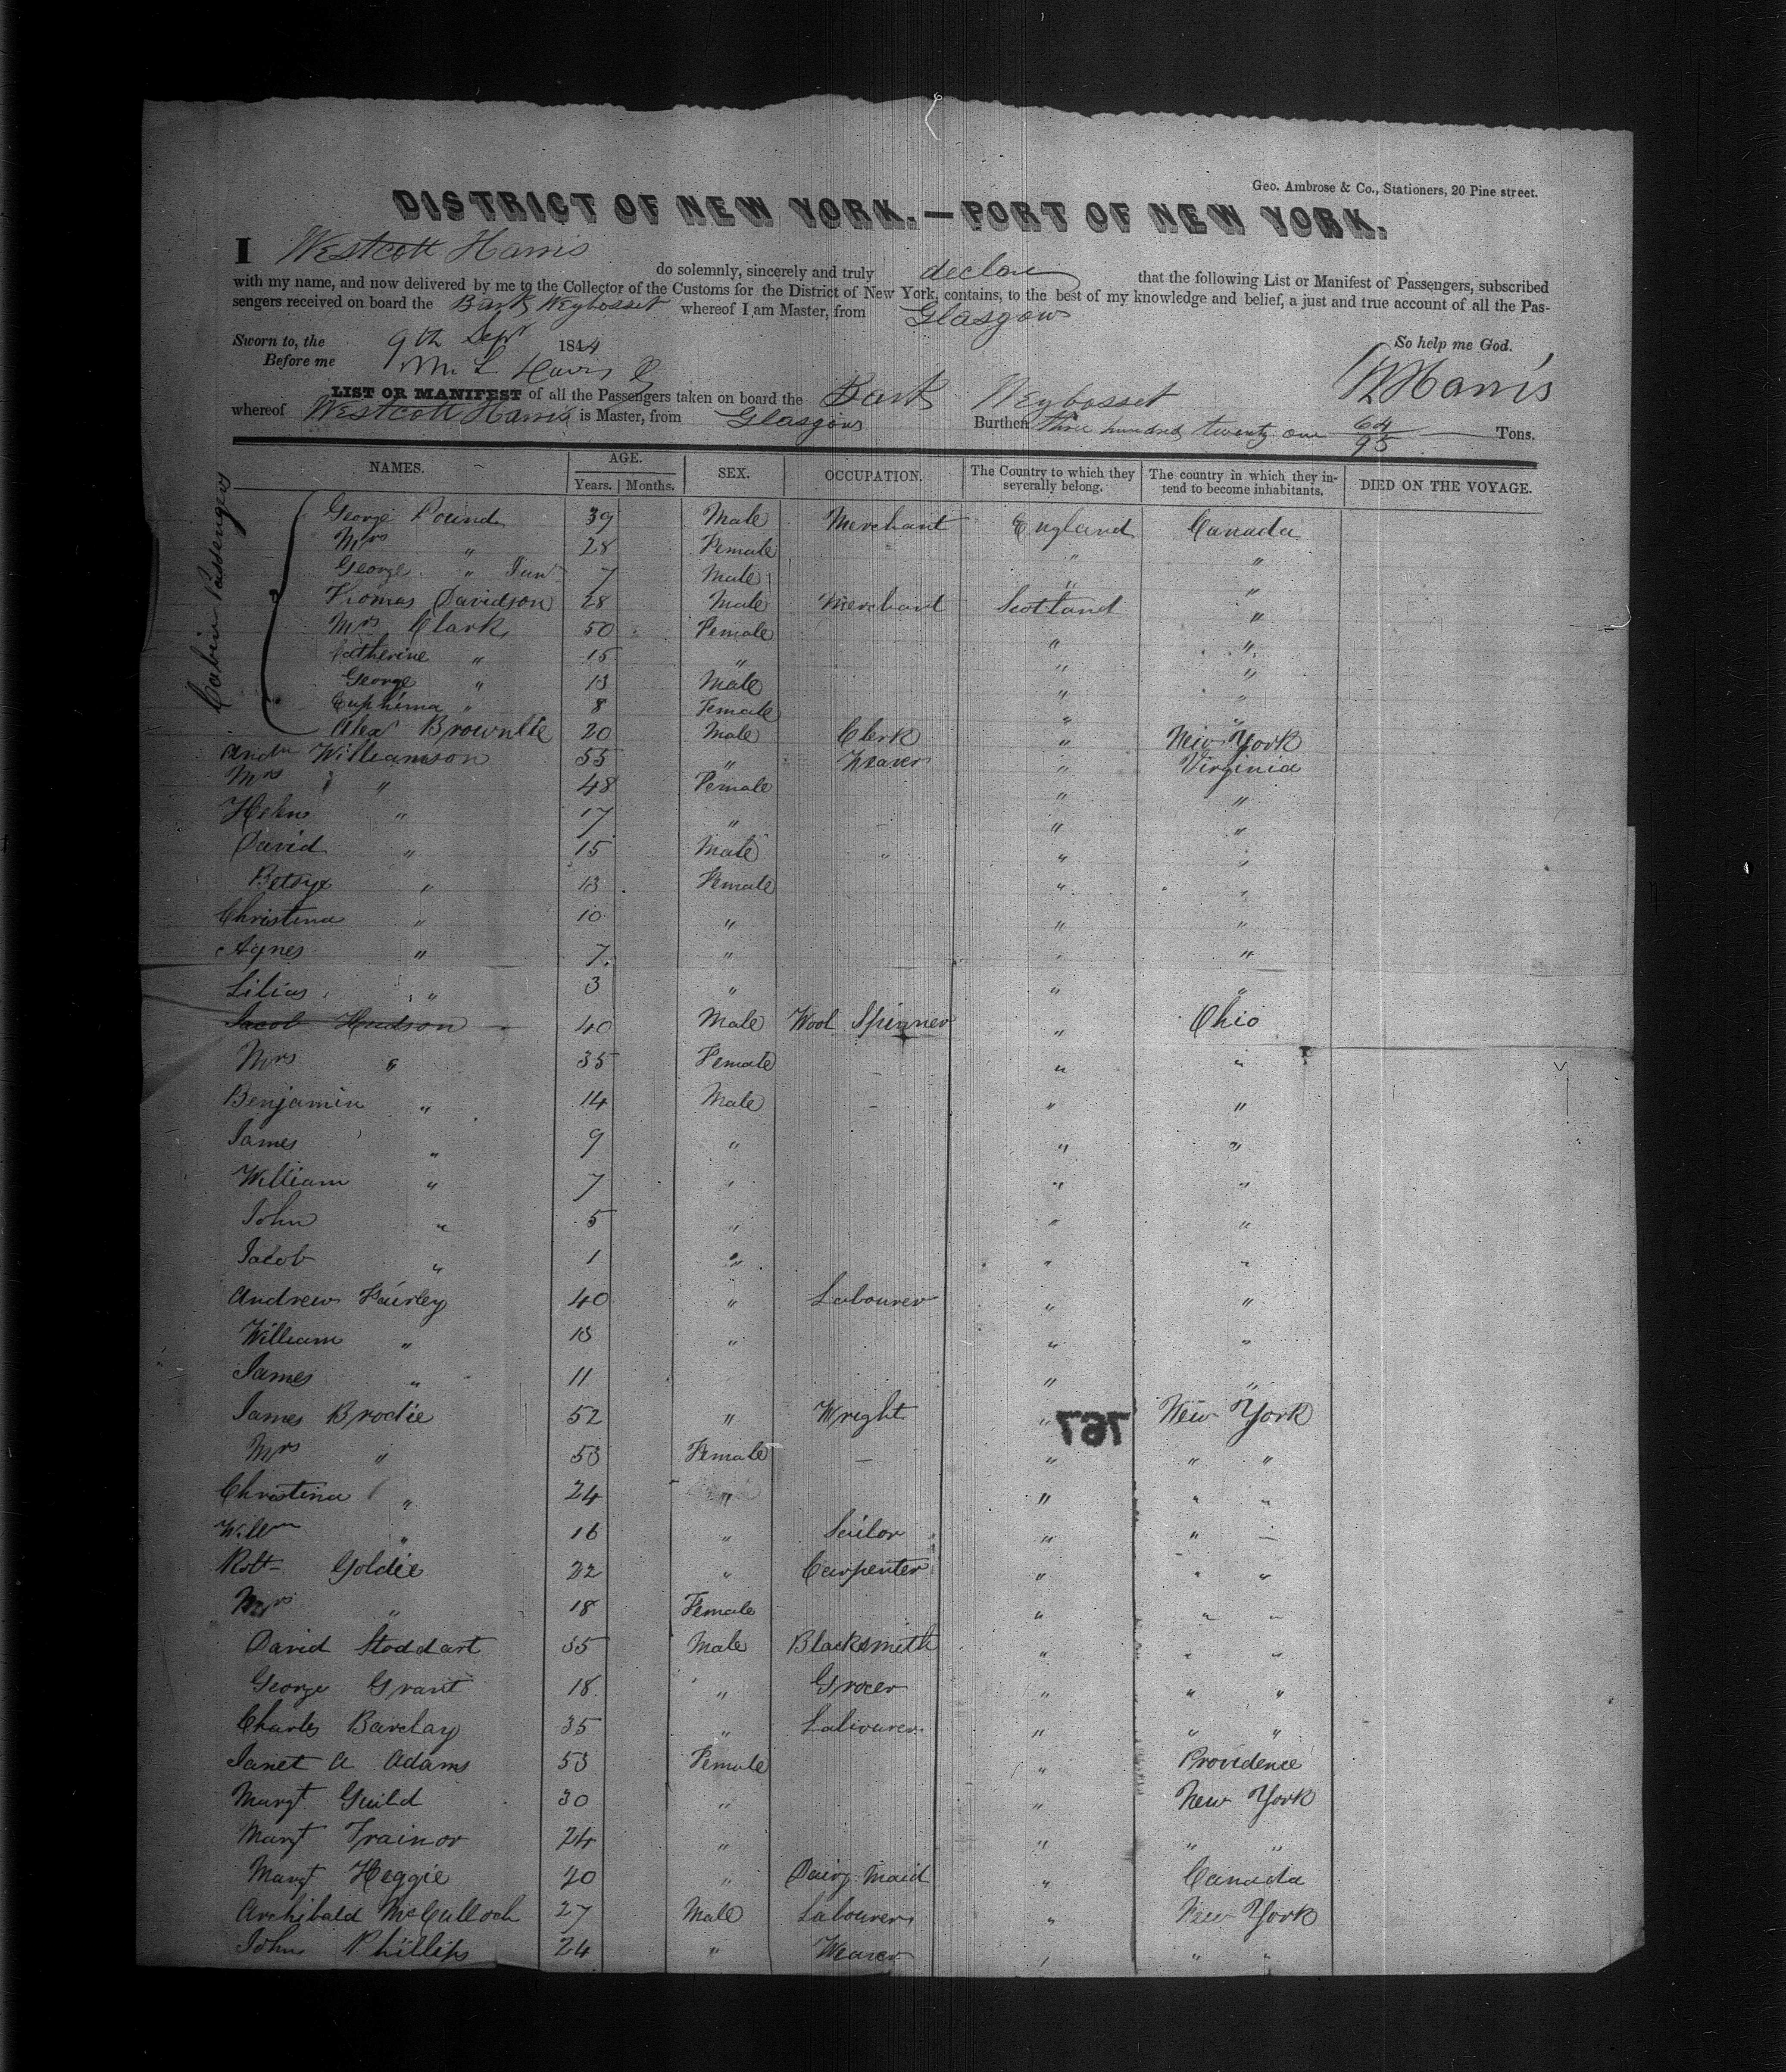 Geo. Ambrose & Co., Stationers, 20 Pine street.
DISTRICT OF NEW YORK.—PORT OF NEW YORK.
I Westcott Harris do solemnly, sincerely and truly declare that the following List or Manifest of Passengers, subscribed
with my name, and now delivered by me to the Collector of the Customs for the District of New York, contains, to the best of my knowledge and belief, a just and true account of all the Pas-
sengers received on board the Bark Weybosset whereof I am Master, from Glasgow
Sworn to, the 9th Sept 1844 So help me God.
Before me W Harris
LIST OR MANIFEST of all the Passengers taken on board the Bark Weybosset
whereof Westcott Harris is Master, from Glasgow Burthen three hundred twenty one 64/95 Tons.
NAMES. AGE. Years. Months. SEX. OCCUPATION. The Country to which they severally belong. The country in which they in-tend to become inhabitants. DIED ON THE VOYAGE.
Cabin Passengers
George Pound 39 Male Merchant England Canada
Mrs " 28 Female " "
George " Junr 7 Male " "
Thomas Davidson 28 Male Merchant Scotland "
Mrs Clark 50 Female " "
Catherine " 15 " " "
George " 13 Male " "
Euphema " 8 Female " "
Alexr Brownlie 20 Male Clerk " New York
Andw Williamson 55 " Weaver " Virginia
Mrs " 48 Female " "
Helen " 17 " " "
David " 15 Male " " "
Betsye " 13 Female " "
Christina " 10 " " "
Agnes " 7 " " "
Lilias " 3 " " "
Jacob Hudson 40 Male Wool Spinner " Ohio
Mrs " 35 Female " "
Benjamin " 14 Male " "
James " 9 " " "
William " 7 " " "
John " 5 " " "
Jacob " 1 " " "
Andrew Fairley 40 " Labourer " "
William " 13 " " "
James " 11 " "
James Brodie 52 " Wright " New York
767
Mrs " 53 Female — " " "
Christina " 24 " " " "
Willm " 16 " Sailor " " "
Robt Goldie 22 " Carpenter " " "
Mrs " 18 Female " " "
David Stoddart 35 Male Blacksmith " " "
George Grant 18 " Grocer " " "
Charles Barclay 35 " Labourer " " "
Janet A Adams 53 Female " Providence
Margt Guild 30 " " New York
Margt Trainor 24 " " " "
Margt Heggie 40 " Dairy Maid " Canada
Archibald McCulloch 27 Male Labourer " New York
John Phillips 24 " Weaver " " "